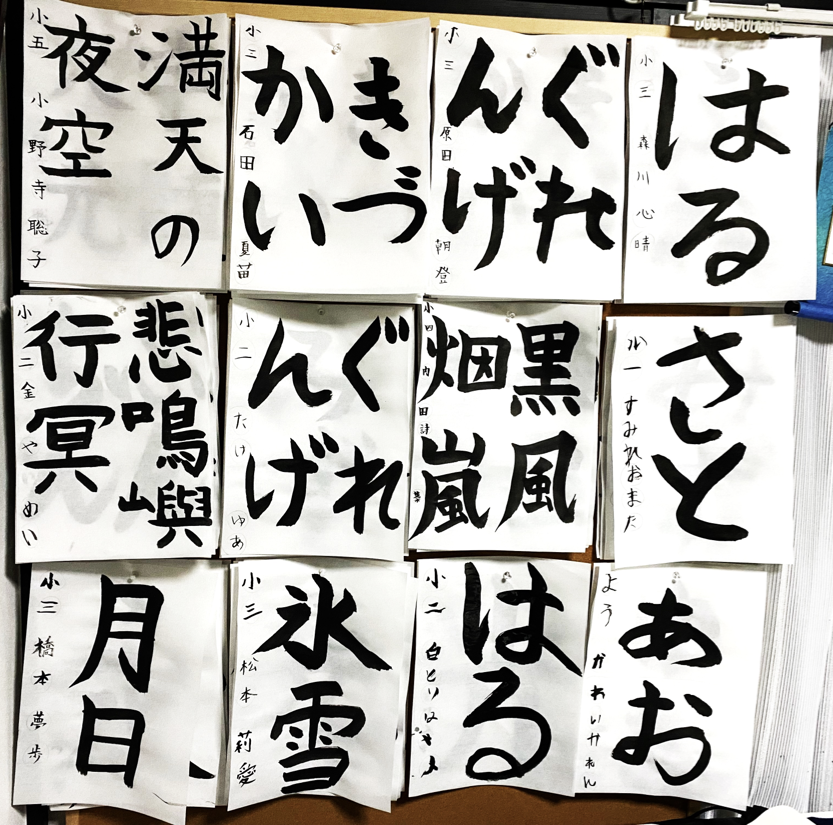 はる
小三 森川 心晴
ぐれ
んげ
小三 原田 朝登
きづ
かい
小三 石田 夏苗
満天の
夜空
小五 小野寺 聡子
さと
小一 すみれおまた
黒風
烟嵐
小四 内田
ぐれ
んげ
小二 たけ ゆあ
悲鳴嶼
行冥
小二 金や めい
あお
よう かわいかれん
はる
小二 白とり
氷雪
小三 松本 莉愛
月日
小三 橋本 夢歩